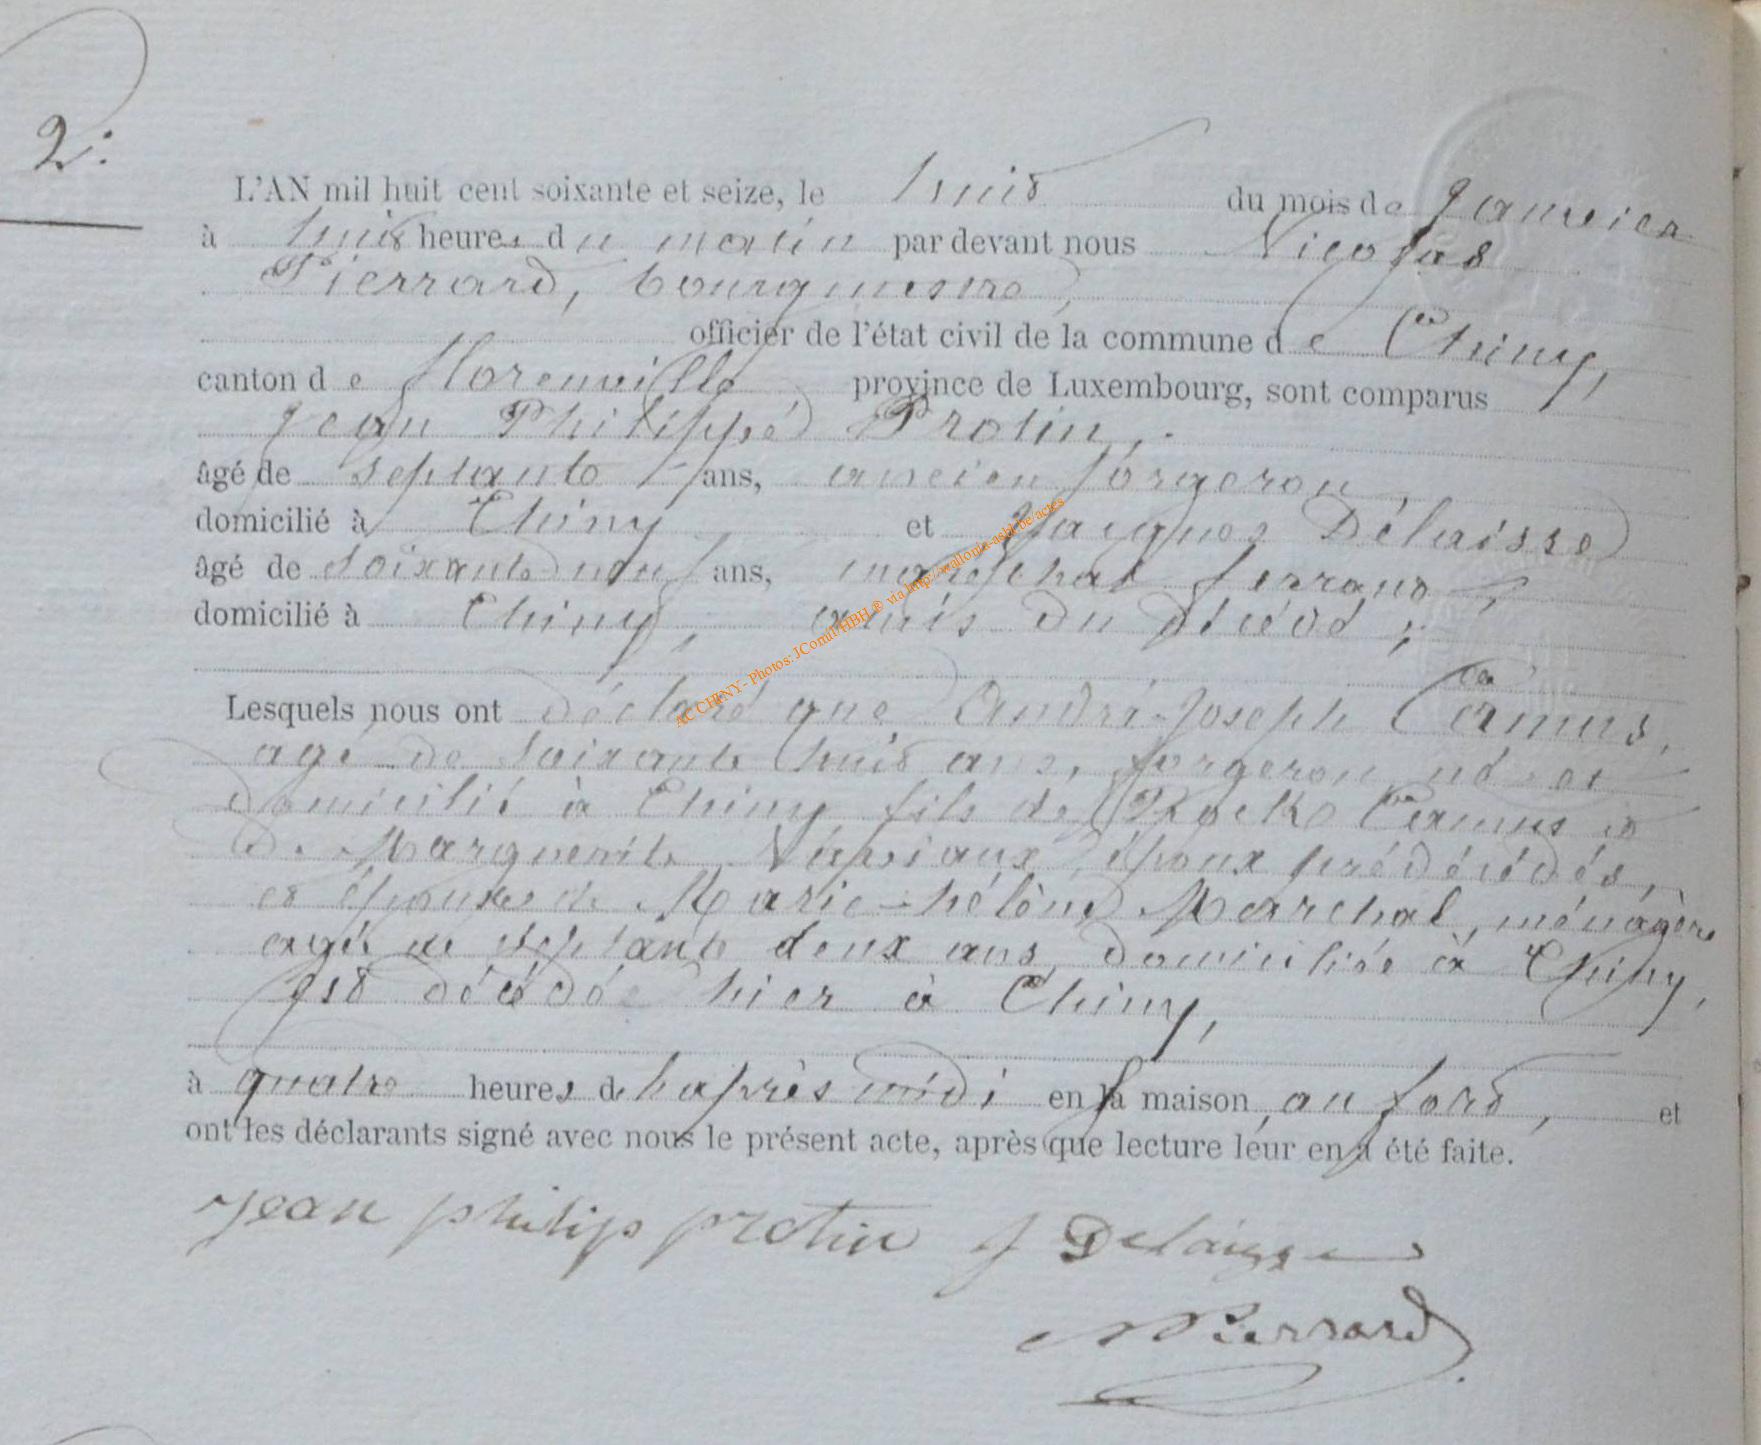 2.
L'AN mil huit cent soixante et seize, le huit du mois de Janvier
à huit heures du matin par devant nous Nicolas
Pierrard, bourgmestre,
officier de l'état civil de la commune de Chiny,
canton de Florenville province de Luxembourg, sont comparus
Jean Philippe Protin,
âgé de septante ans, ancien forgeron,
domicilié à Chiny et Jacques Délaisse
âgé de soixante neuf ans, maréchal ferrant,
domicilié à Chiny, amis du décédé,
Lesquels nous ont déclaré que André-Joseph Camus,
agé de soixante huit ans, forgeron, né et
domicilié à Chiny fils de Camus et
de Marguerite époux prédécédés,
et époux de Marie-hélène Marchal, ménagère
agée de septante deux ans, domiciliée à Chiny,
est décédé hier à Chiny,
à quatre heures de l'après midi en sa maison, au ford, et
ont les déclarants signé avec nous le présent acte, après que lecture leur en a été faite.
Jean philip protin J Delaisse
NPierrard
AC CHINY - Photos: JComil/HBH ® via http://wallonia-asbl.be/actes